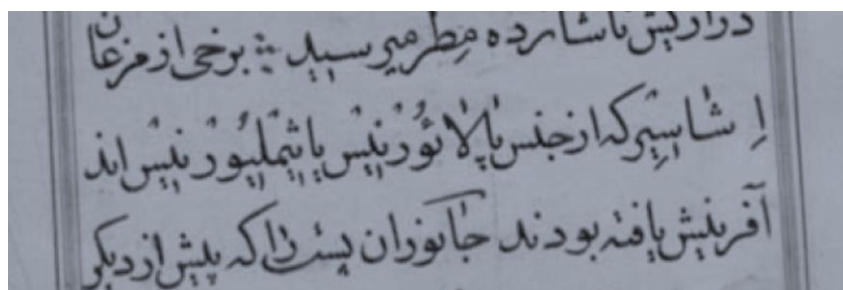 درازیش تا شانزده مِطر میرسید ؞ برخی از مرغان
که از جنس پالائورنیس یا اند
آفرینش یافته بودند جانوران پست را که پیش از دیگر